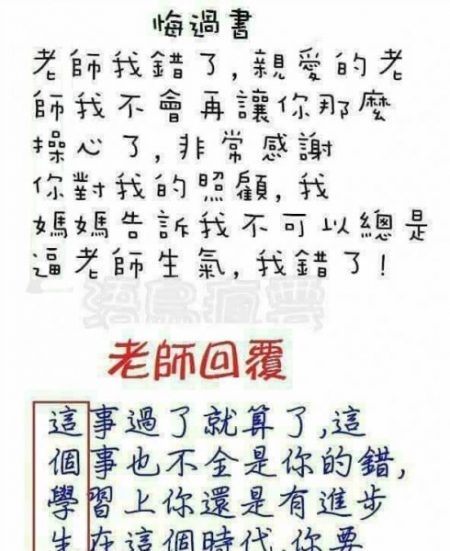 悔過書
老師我錯了,親愛的老
師我不會再讓你那麼
操心了,非常感謝
你對我的照顧,我
媽媽告訴我不可以總是
逼老師生氣,我錯了!
老師回覆
這事過了就算了,這
個事也不全是你的錯,
學習上你還是有進步
生在這個時代,你要